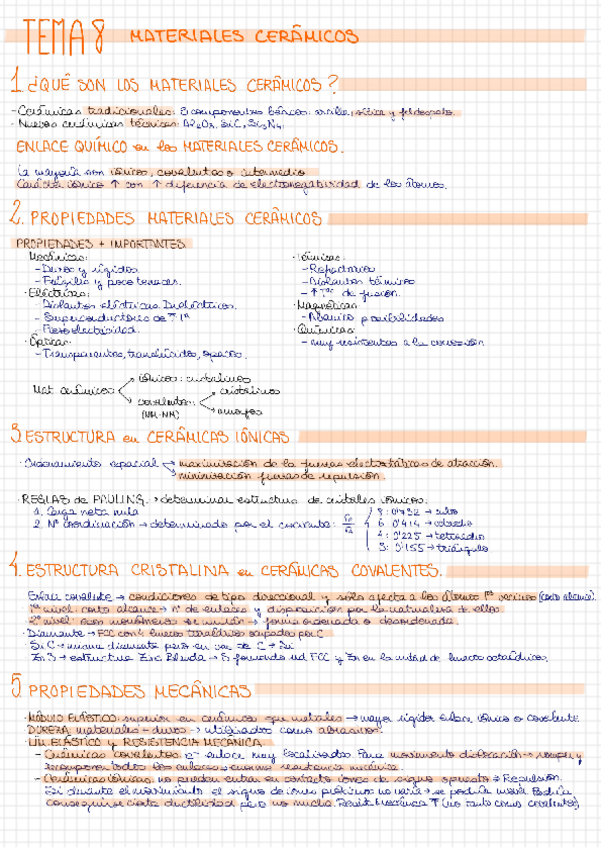 TEMA 8 MATERIALES CERÁMICOS
1. ¿QUÉ SON LOS MATERIALES CERÁMICOS?
- Cerámicas tradicionales: 3 componentes básicos: arcilla, sílice y feldespato.
- Nuevas cerámicas técnicas: Al2O3, SiC, Si3N4.
ENLACE QUÍMICO en los MATERIALES CERÁMICOS.
La mayoría son iónicos, covalentes o intermedio
Carácter iónico ↑ con ↑ diferencia de electronegatividad de los átomos.
2. PROPIEDADES MATERIALES CERÁMICOS
PROPIEDADES + IMPORTANTES
· Mecánicas:
- Duros y rígidos
- Frágiles y poco tenaces.
· Eléctricas:
- Aislantes eléctricos. Dieléctricos.
- Superconductores de ↑ Tª
- Piezoelectricidad.
· Ópticas:
- Transparentes, translúcidos, opacos.
· Térmicas:
- Refractarios
- Aislantes térmicos
- ↑ Tª de fusión.
· Magnéticas
- Abanico posibilidades
· Químicas
- muy resistentes a la corrosión
Mat cerámicos
iónicos: cristalinos
covalentes: (NM-NM)
cristalinos
amorfos
3. ESTRUCTURA en CERÁMICAS IÓNICAS
· Ordenamiento espacial → maximización de la fuerzas electrostáticas de atracción.
→ minimización fuerzas de repulsión.
· REGLAS de PAULING. → determinar estructura de cristales iónicos.
1. Carga neta nula
2. Nº coordinación → determinado por el cociente:
8: 0'732 → cubo
6: 0'414 → octaedro
4: 0'225 → tetraedro
3: 0'155 → triángulo
4. ESTRUCTURA CRISTALINA en CERÁMICAS COVALENTES.
Enlace covalente → condiciones de tipo direccional y sólo afecta a los átomos 1os vecinos (corto alcance).
1er nivel corto alcance → nº de enlaces y disposición por la naturaleza de ellos.
2º nivel: esos monómeros se unirán → forma ordenada o desordenada.
· Diamante → FCC con 4 huecos tetraédricos ocupados por C
· SiC → misma diamante pero en vez de C → Si
· ZnS → estructura Zinc Blenda → S formando red FCC y Zn en la mitad de huecos octaédricos.
5. PROPIEDADES MECÁNICAS
· MÓDULO ELÁSTICO superior en cerámicos que metales → mayor rigidez enlace iónico o covalente.
· DUREZA materiales + duros → utilizados como abrasivos.
· LIM. ELÁSTICO y RESISTENCIA MECÁNICA
- Cerámicas covalentes: e⁻ enlace muy localizados. Para movimiento dislocación → romper y recomponer todos los enlaces → enorme resistencia mecánica.
- Cerámicas iónicas: no pueden entrar en contacto iones de signo opuesto → Repulsión.
Si durante el movimiento el signo de iones próximos no varía → se podría mover. Podría
conseguirse cierta ductilidad pero no mucha. Resist mecánica ↑ (no tanto como covalentes)